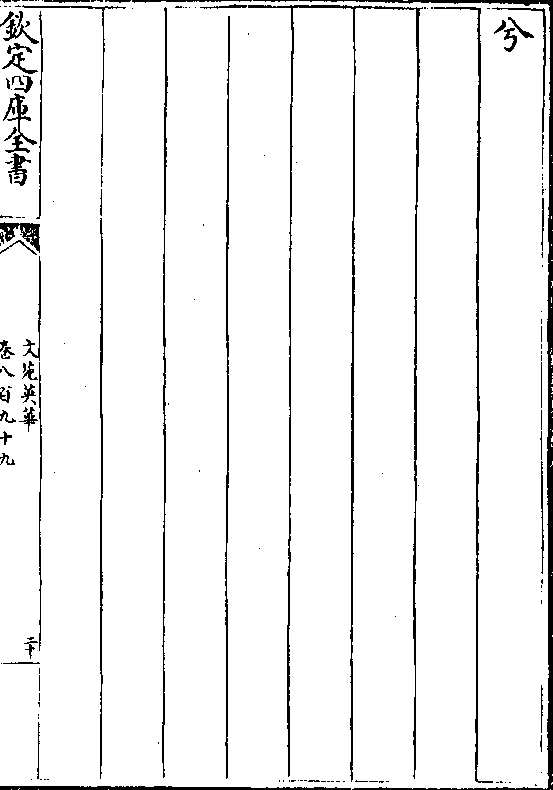 兮
欽定四庫全書
文苑英華
卷八百九十九
二十